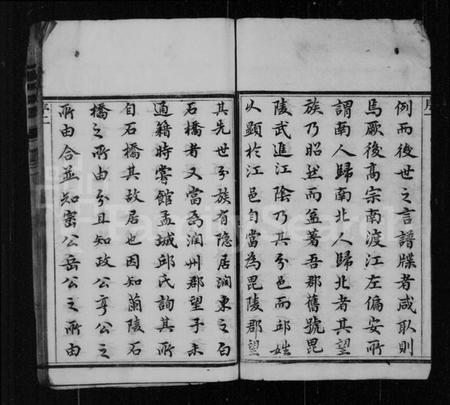 例而後世之言譜牒者咸取則
焉厥後高宗南渡江左偏安所
謂南人歸南北人歸北者其望
族乃昭然而益著吾郡舊號毘
陵武進江陰乃其分邑而邱姓
以顯於江邑自當為毘陵郡望
其先世分族有隐居澗東之白
石橋者又當為潤州郡望予未
通籍時嘗館孟城邱氏詢其所
自石橋其故居也因知蘭陵石
橋之所由分且知政公亨公之
所由合並知密公岳公之所由
序二